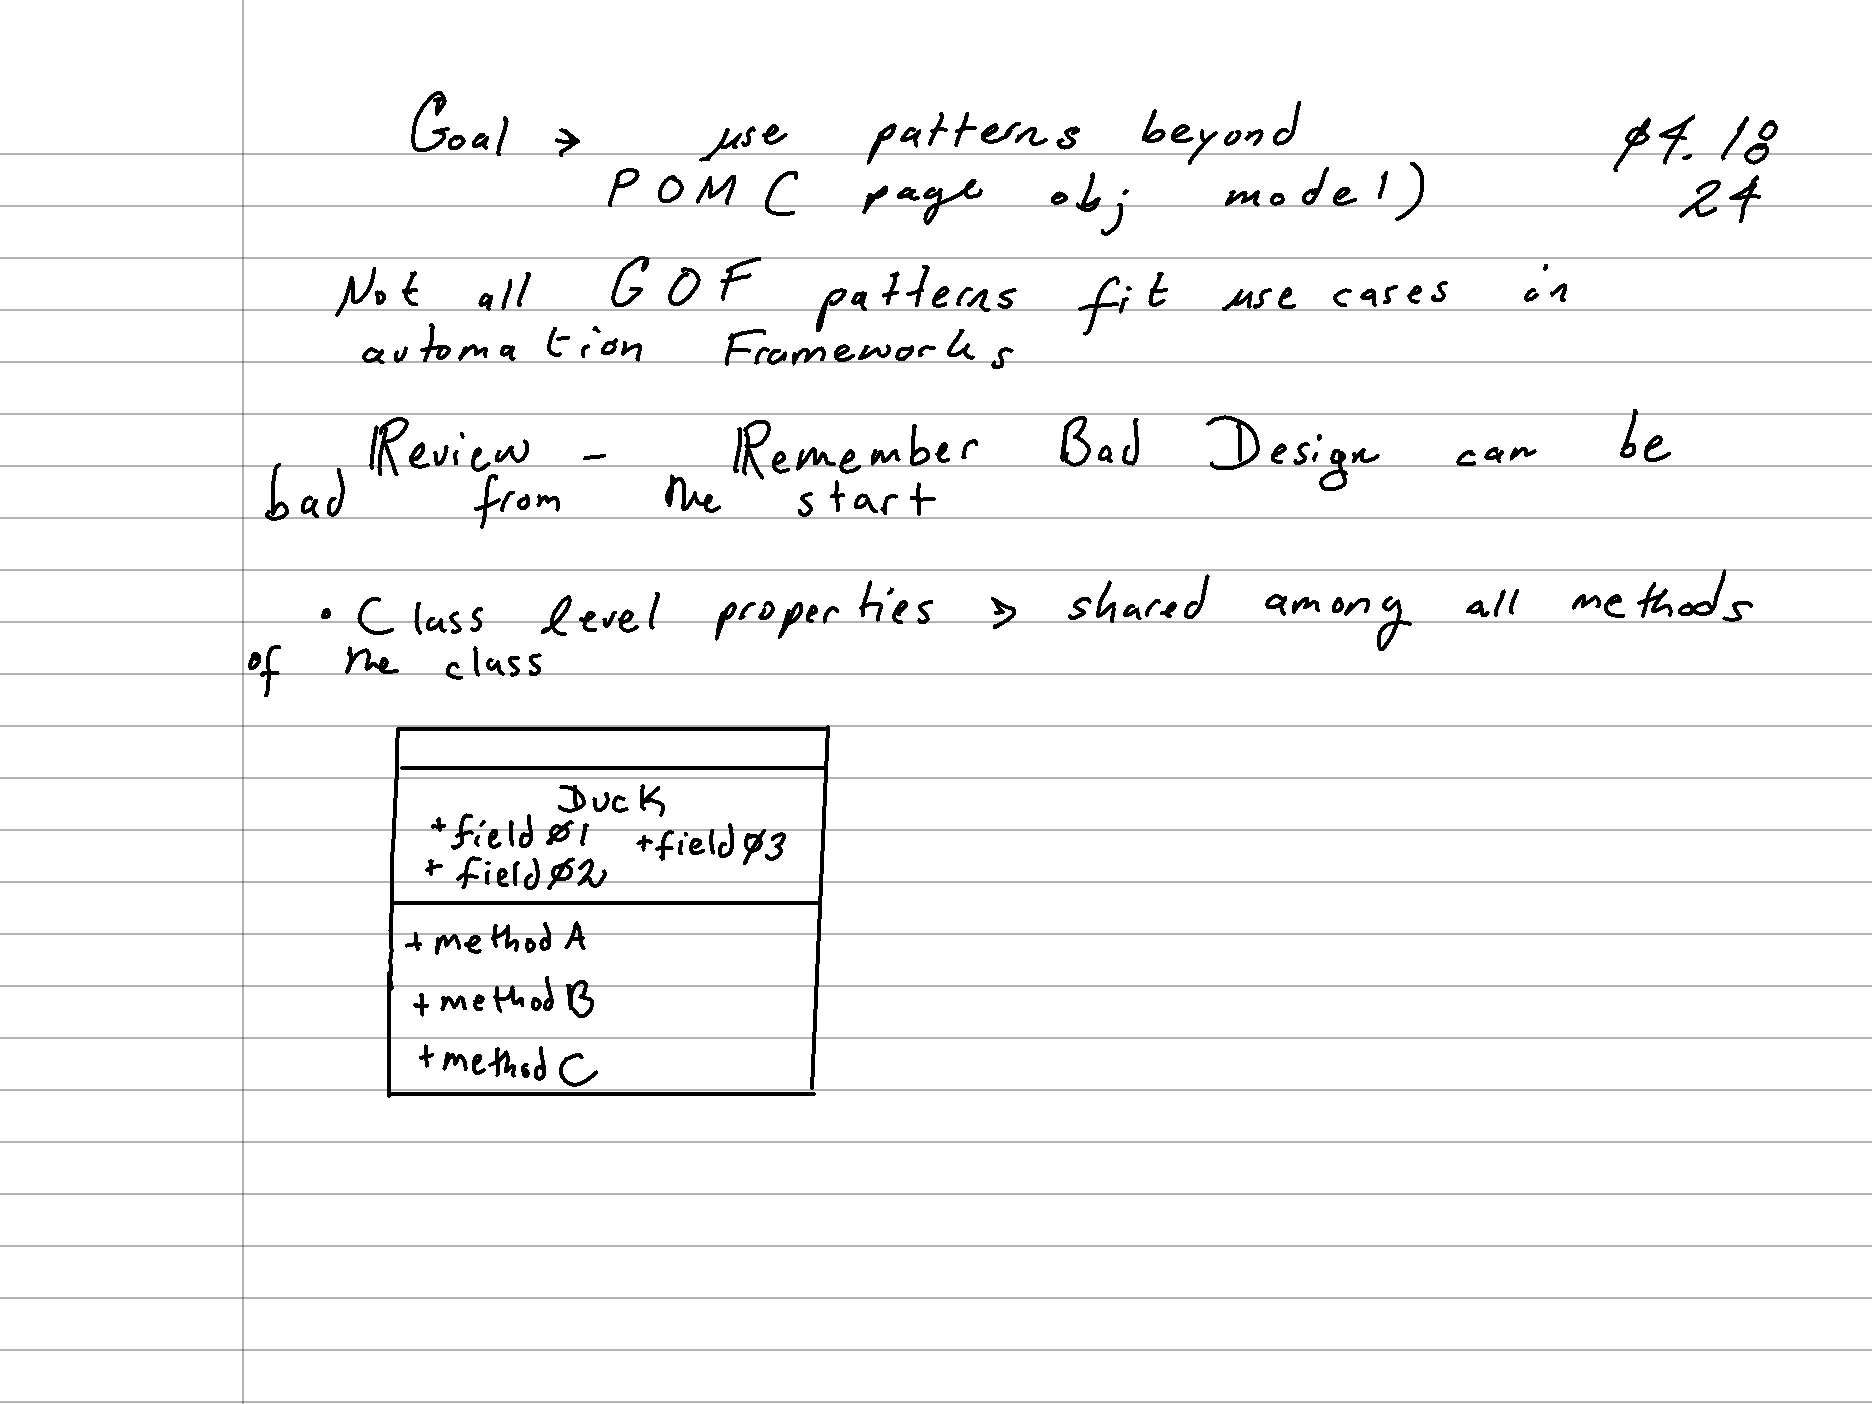 Goal → use patterns beyond
POM ( page obj model)
Ø4.18
24
Not all GOF patterns fit use cases in
automation Frameworks
Review - Remember Bad Design can be
bad from the start
• Class level properties → shared among all methods
of the class
Duck
+field Ø1 +field Ø3
+ field Ø2
+ method A
+ method B
+ method C